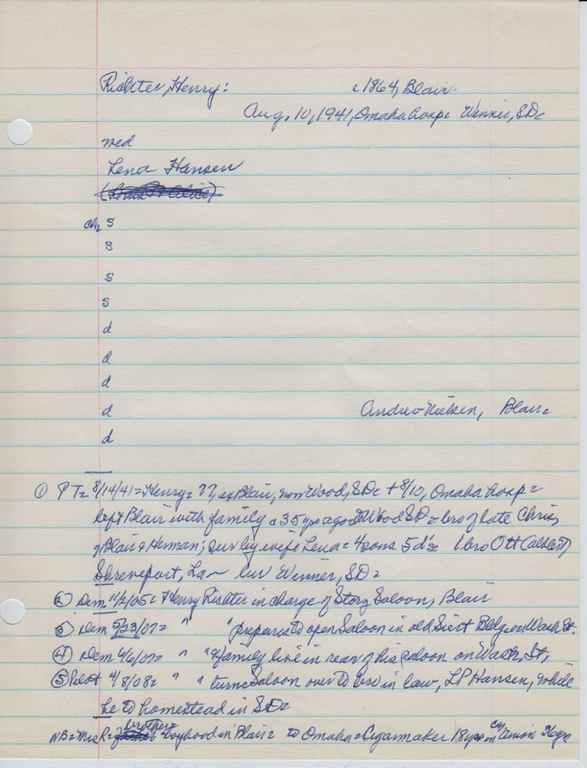 Richter, Henry: c1864, Blair.
Aug. 10, 1941, Omaha hosp= Winner, SD=
med
Lena Hansen
ch= s
s
s
s
d
d
d
d Andrew Nielsen, Blair=
d
① PT= 8/14/41= Henry= 77, ex Blair, now Wood, SD= + 8/10, Omaha hosp=
left Blair with family c 35 yrs ago Wood SD= bro of late Chris,
of Blair & Herman; sur by wife Lena= 4 sons 5 d's= 1 bro Ott (Albert)
Shreveport, La~ bur Winner, SD=
② Dem 11/2/05= Henry Richter in charge of Storz Saloon, Blair
③ Dem 5/23/07= " " prepares to open Saloon in old Bldg on Wash St.
④ Dem 6/6/07= " " & family live in rear of his saloon on Wash, St,
⑤ Pilot 4/8/08= " " turns Saloon over to bro in law, LP Hansen, while
he to homestead in SD=
NB= Mrs R= brother boyhood in Blair= to Omaha= Cigarmaker 18 yrs on Union